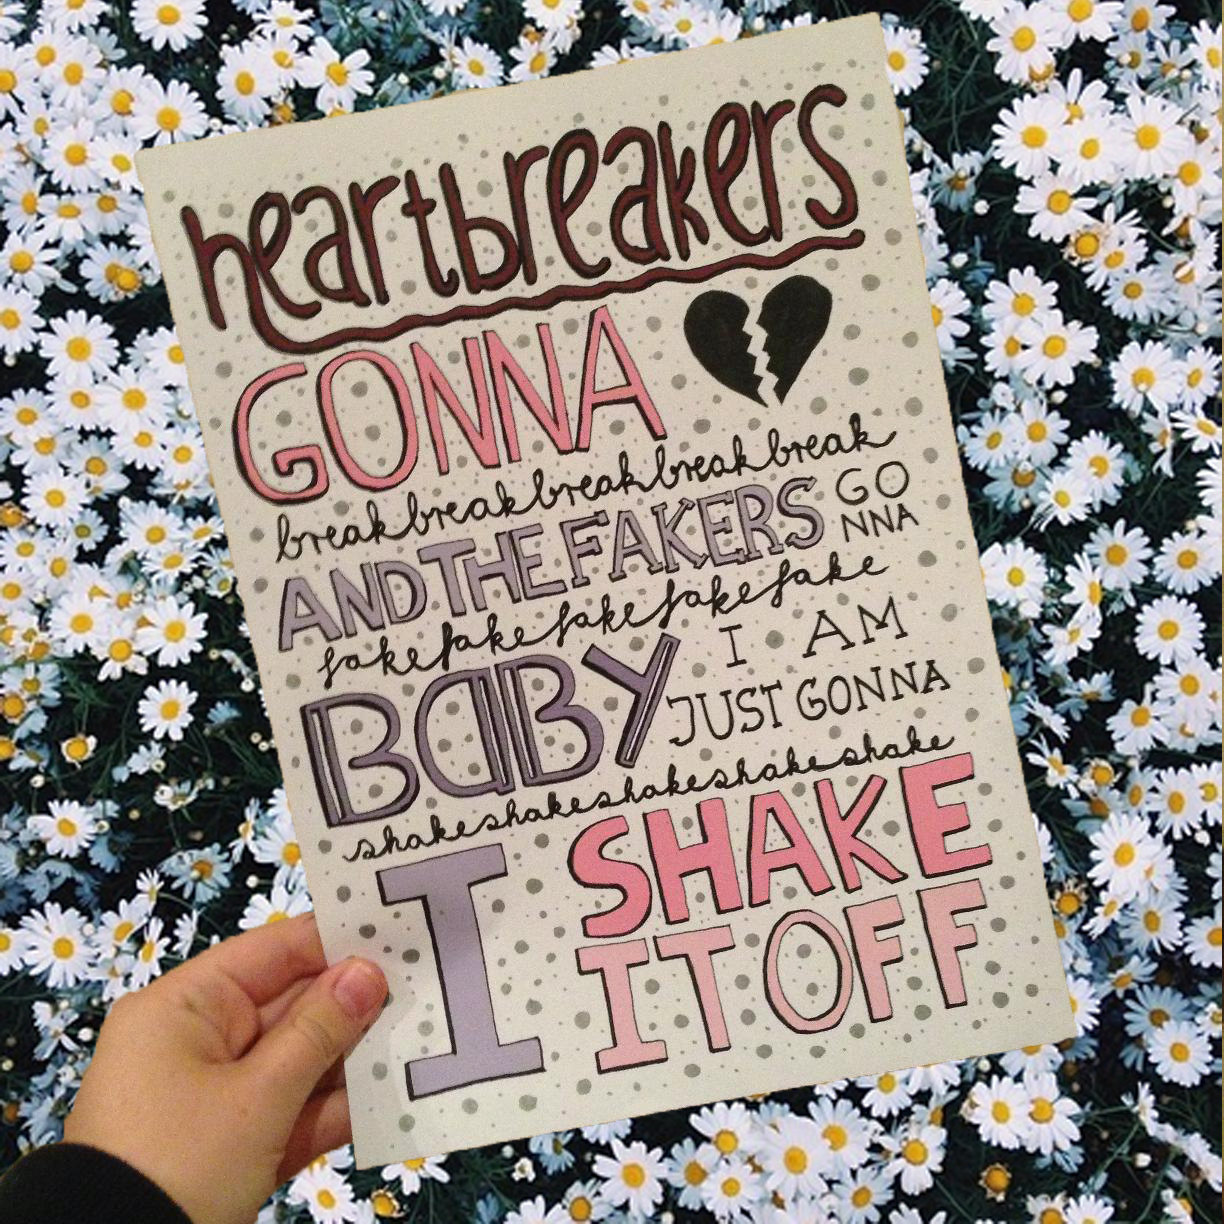 heartbreakers
GONNA
breakbreakbreakbreakbreak
AND THE FAKERS GO
NNA
fakefakefakefakefake
BABY I AM
JUST GONNA
shakeshakeshakeshakeshake
I SHAKE
IT OFF